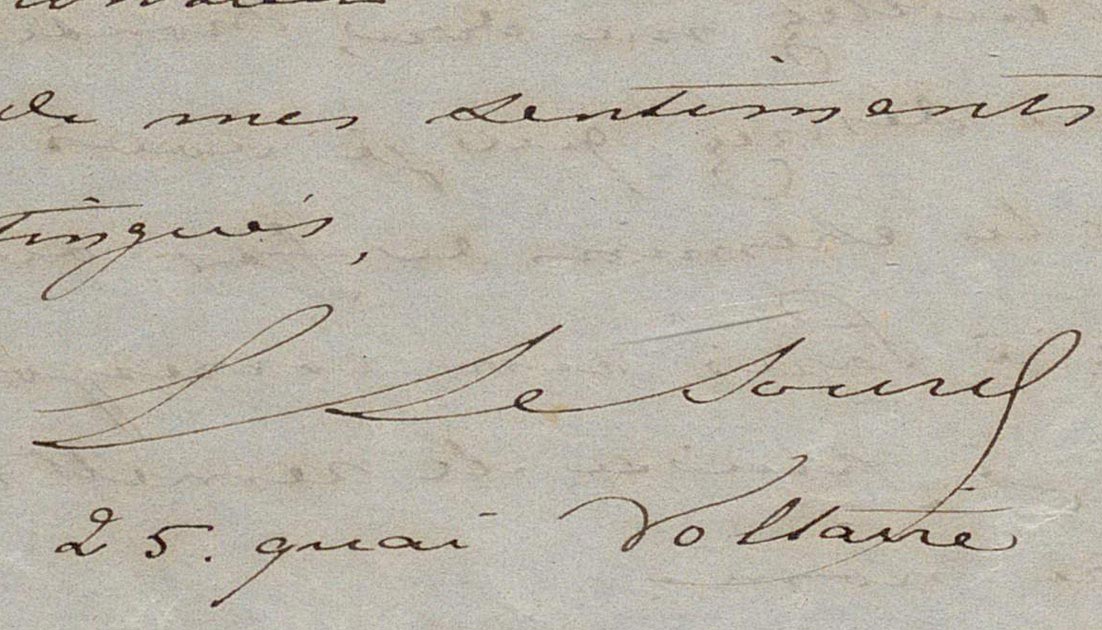 de mes sentiments
tingués,
L Le Sourd
25. quai Voltaire